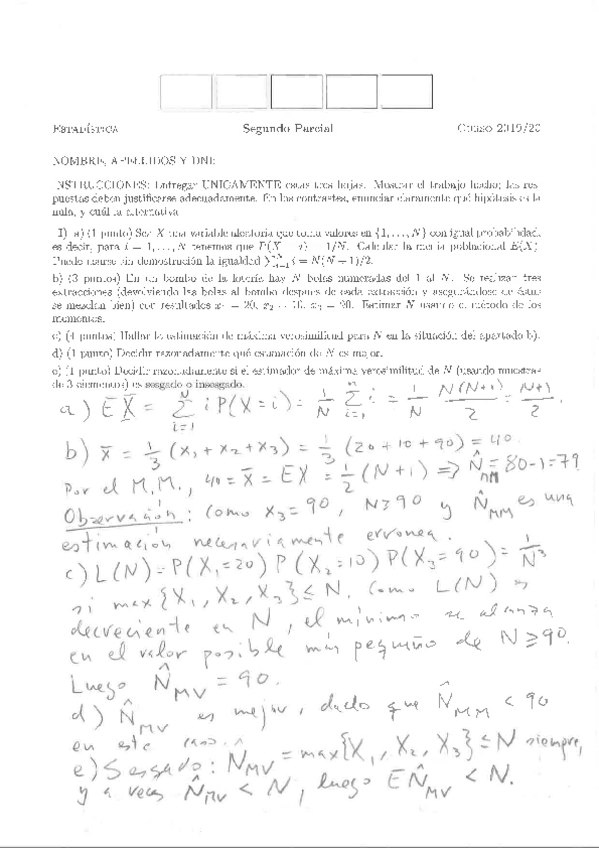 ESTADÍSTICA Segundo Parcial Curso 2019/20
NOMBRE, APELLIDOS Y DNI:
INSTRUCCIONES: Entregar UNICAMENTE estas tres hojas. Mostrar el trabajo hecho; las res-
puestas deben justificarse adecuadamente. En los contrastes, enunciar claramente qué hipótesis es la
nula, y cuál la alternativa.
1) a) (1 punto) Sea X una variable aleatoria que toma valores en {1, . . . , N} con igual probabilidad,
es decir, para i = 1, . . . , N tenemos que P(X = i) = 1/N. Calcular la media poblacional E(X).
Puede usarse sin demostración la igualdad ∑ᴺᵢ₌₁ i = N(N + 1)/2.
b) (3 puntos) En un bombo de la lotería hay N bolas numeradas del 1 al N. Se realizan tres
extracciones (devolviendo las bolas al bombo después de cada extracción y asegurándose de que
se mezclan bien) con resultados x₁ = 20, x₂ = 10, x₃ = 90. Estimar N usando el método de los
momentos.
c) (4 puntos) Hallar la estimación de máxima verosimilitud para N en la situación del apartado b).
d) (1 punto) Decidir razonadamente qué estimación de N es mejor.
e) (1 punto) Decidir razonadamente si el estimador de máxima verosimilitud de N (usando muestras
de 3 elementos) es sesgado o insesgado.
a) E X̄ = ∑ᵢ₌₁ⁿ i P(X=i) = 1/N ∑ᵢ₌₁ⁿ i = 1/N N(N+1)/2 = N+1/2.
b) x̄ = 1/3 (x₁ + x₂ + x₃) = 1/3 (20 + 10 + 90) = 40.
Por el M.M., 40 = x̄ = EX = 1/2 (N+1) => N̂ MM = 80-1 = 79
Observación: como x₃ = 90, N ≥ 90 y N̂ MM es una
estimación necesariamente erronea.
c) L(N) = P(X₁=20) P(X₂=10) P(X₃=90) = 1/N³
si max{X₁, X₂, X₃} ≤ N. Como L(N) es
decreciente en N, el mínimo se alcanza
en el valor posible más pequeño de N ≥ 90.
Luego N̂ MV = 90.
d) N̂ MV es mejor, dado que N̂ MM < 90
en este caso.
e) Sesgado: N̂ MV = max{X₁, X₂, X₃} ≤ N siempre,
y a veces N̂ MV < N, luego E N̂ MV < N.